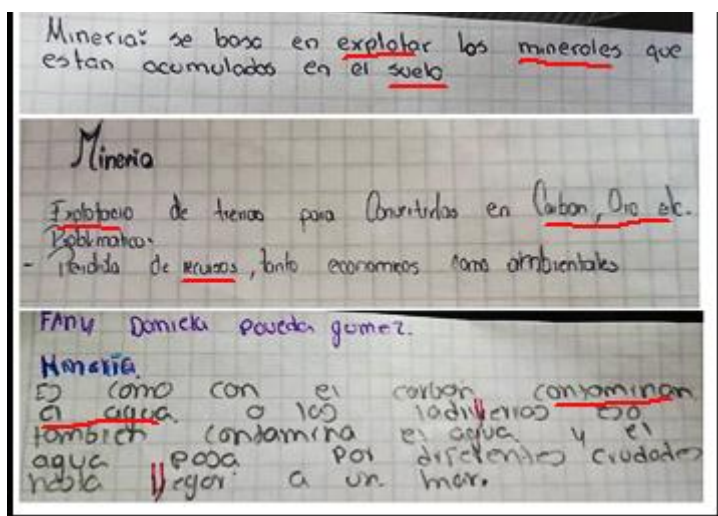 Mineria: se basa en explotar los minerales que
estan acumulados en el suelo
Mineria
Explotacio de trenas para Convertirlas en Carbon, Oro etc.
Problimatica.
- Perdida de recursos, tanto economicos como ambientales
FAny Daniela poveda gomez.
Mineria.
Es como con el carbon contaminan
el agua o las ladrilleríos eso
tambien contamina el agua y el
agua pasa por diferentes ciudades
hasta llegar a un mar.